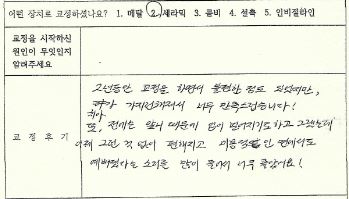 어떤 장치로 교정하셨나요? 1. 메탈 2. 세라믹 3. 콤비 4. 설측 5. 인비절라인
교정을 시작하신
원인이 무엇인지
알려주세요
교 정 후 기
2년동안 교정을 하면서 불편한 점도 있었지만,
치아 가지런해져서 너무 만족스럽습니다!
치아
또, 전에는 앞니 때문에 입이 튀어지기도 하고 그랬는데
이제 그런 것 없이 편해지고 미용적인 면에서도
예뻐졌다는 소리를 많이 들어서 너무 좋았어요!